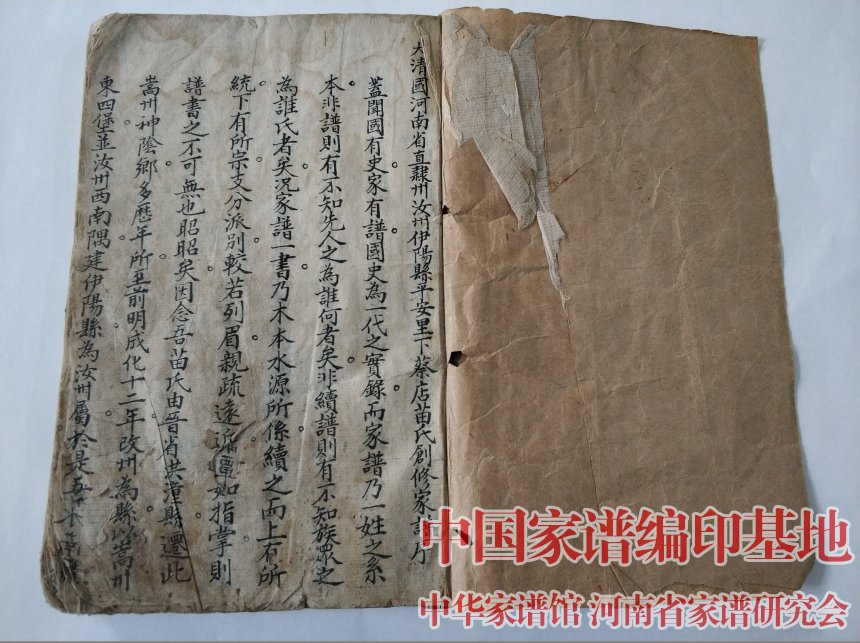 大清國河南省直隸州汝州伊陽縣平安里下蔡店苗氏創修家譜序
蓋聞國有史家有譜國史為一代之實錄而家譜乃一姓之系
本非譜則有不知先人之為誰何者矣非續譜則有不知族眾之
為誰氏者矣況家譜一書乃木本水源所係續之而上有所
統下有所宗支分派別較若列眉親疏遠邇燦如指掌則
譜書之不可無也昭昭矣因念吾苗氏由晉省洪潼縣遷此
嵩州神陰鄉多歷年所至前明成化十二年改州為縣以嵩州
東四堡並汝州西南隅建伊陽縣為汝州屬於是吾
中国家谱编印基地
中华家谱馆 河南省家谱研究会